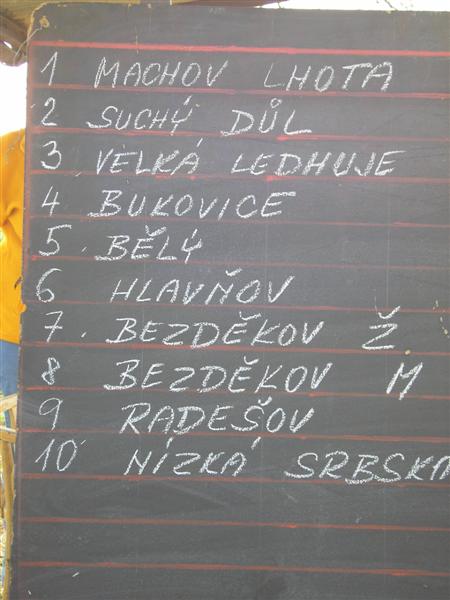 1 MACHOV LHOTA
2 SUCHÝ DŮL
3 VELKÁ LEDHUJE
4 BUKOVICE
5. BĚLÝ
6 HLAVŇOV
7. BEZDĚKOV Ž
8 BEZDĚKOV M
9 RADEŠOV
10 NÍZKÁ SRBSKA